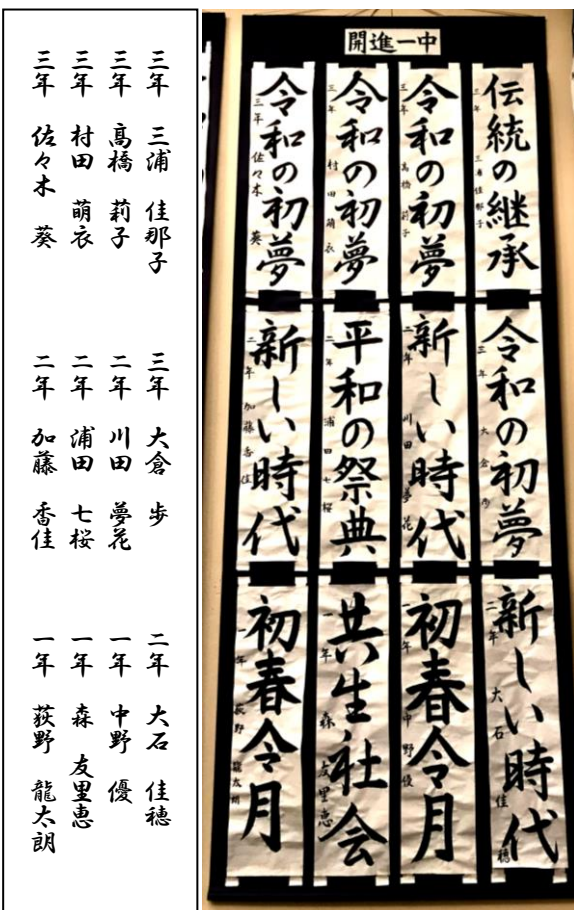 三年　三浦　佳那子
三年　髙橋　莉子
三年　村田　萌衣
三年　佐々木　葵
三年　大倉　歩
二年　川田　夢花
二年　浦田　七桜
二年　加藤　香佳
二年　大石　佳穂
一年　中野　優
一年　森　友里恵
一年　荻野　龍太朗
開進一中
伝統の継承
三年　三浦佳那子
令和の初夢
三年　髙橋莉子
令和の初夢
三年　村田萌衣
令和の初夢
三年　佐々木　葵
令和の初夢
三年　大倉　歩
新しい時代
二年　川田夢花
平和の祭典
二年　浦田七桜
新しい時代
二年　加藤香佳
新しい時代
二年　大石　佳穂
初春令月
一年　中野　優
共生社会
一年　森　友里恵
初春令月
一年　荻野　龍太朗